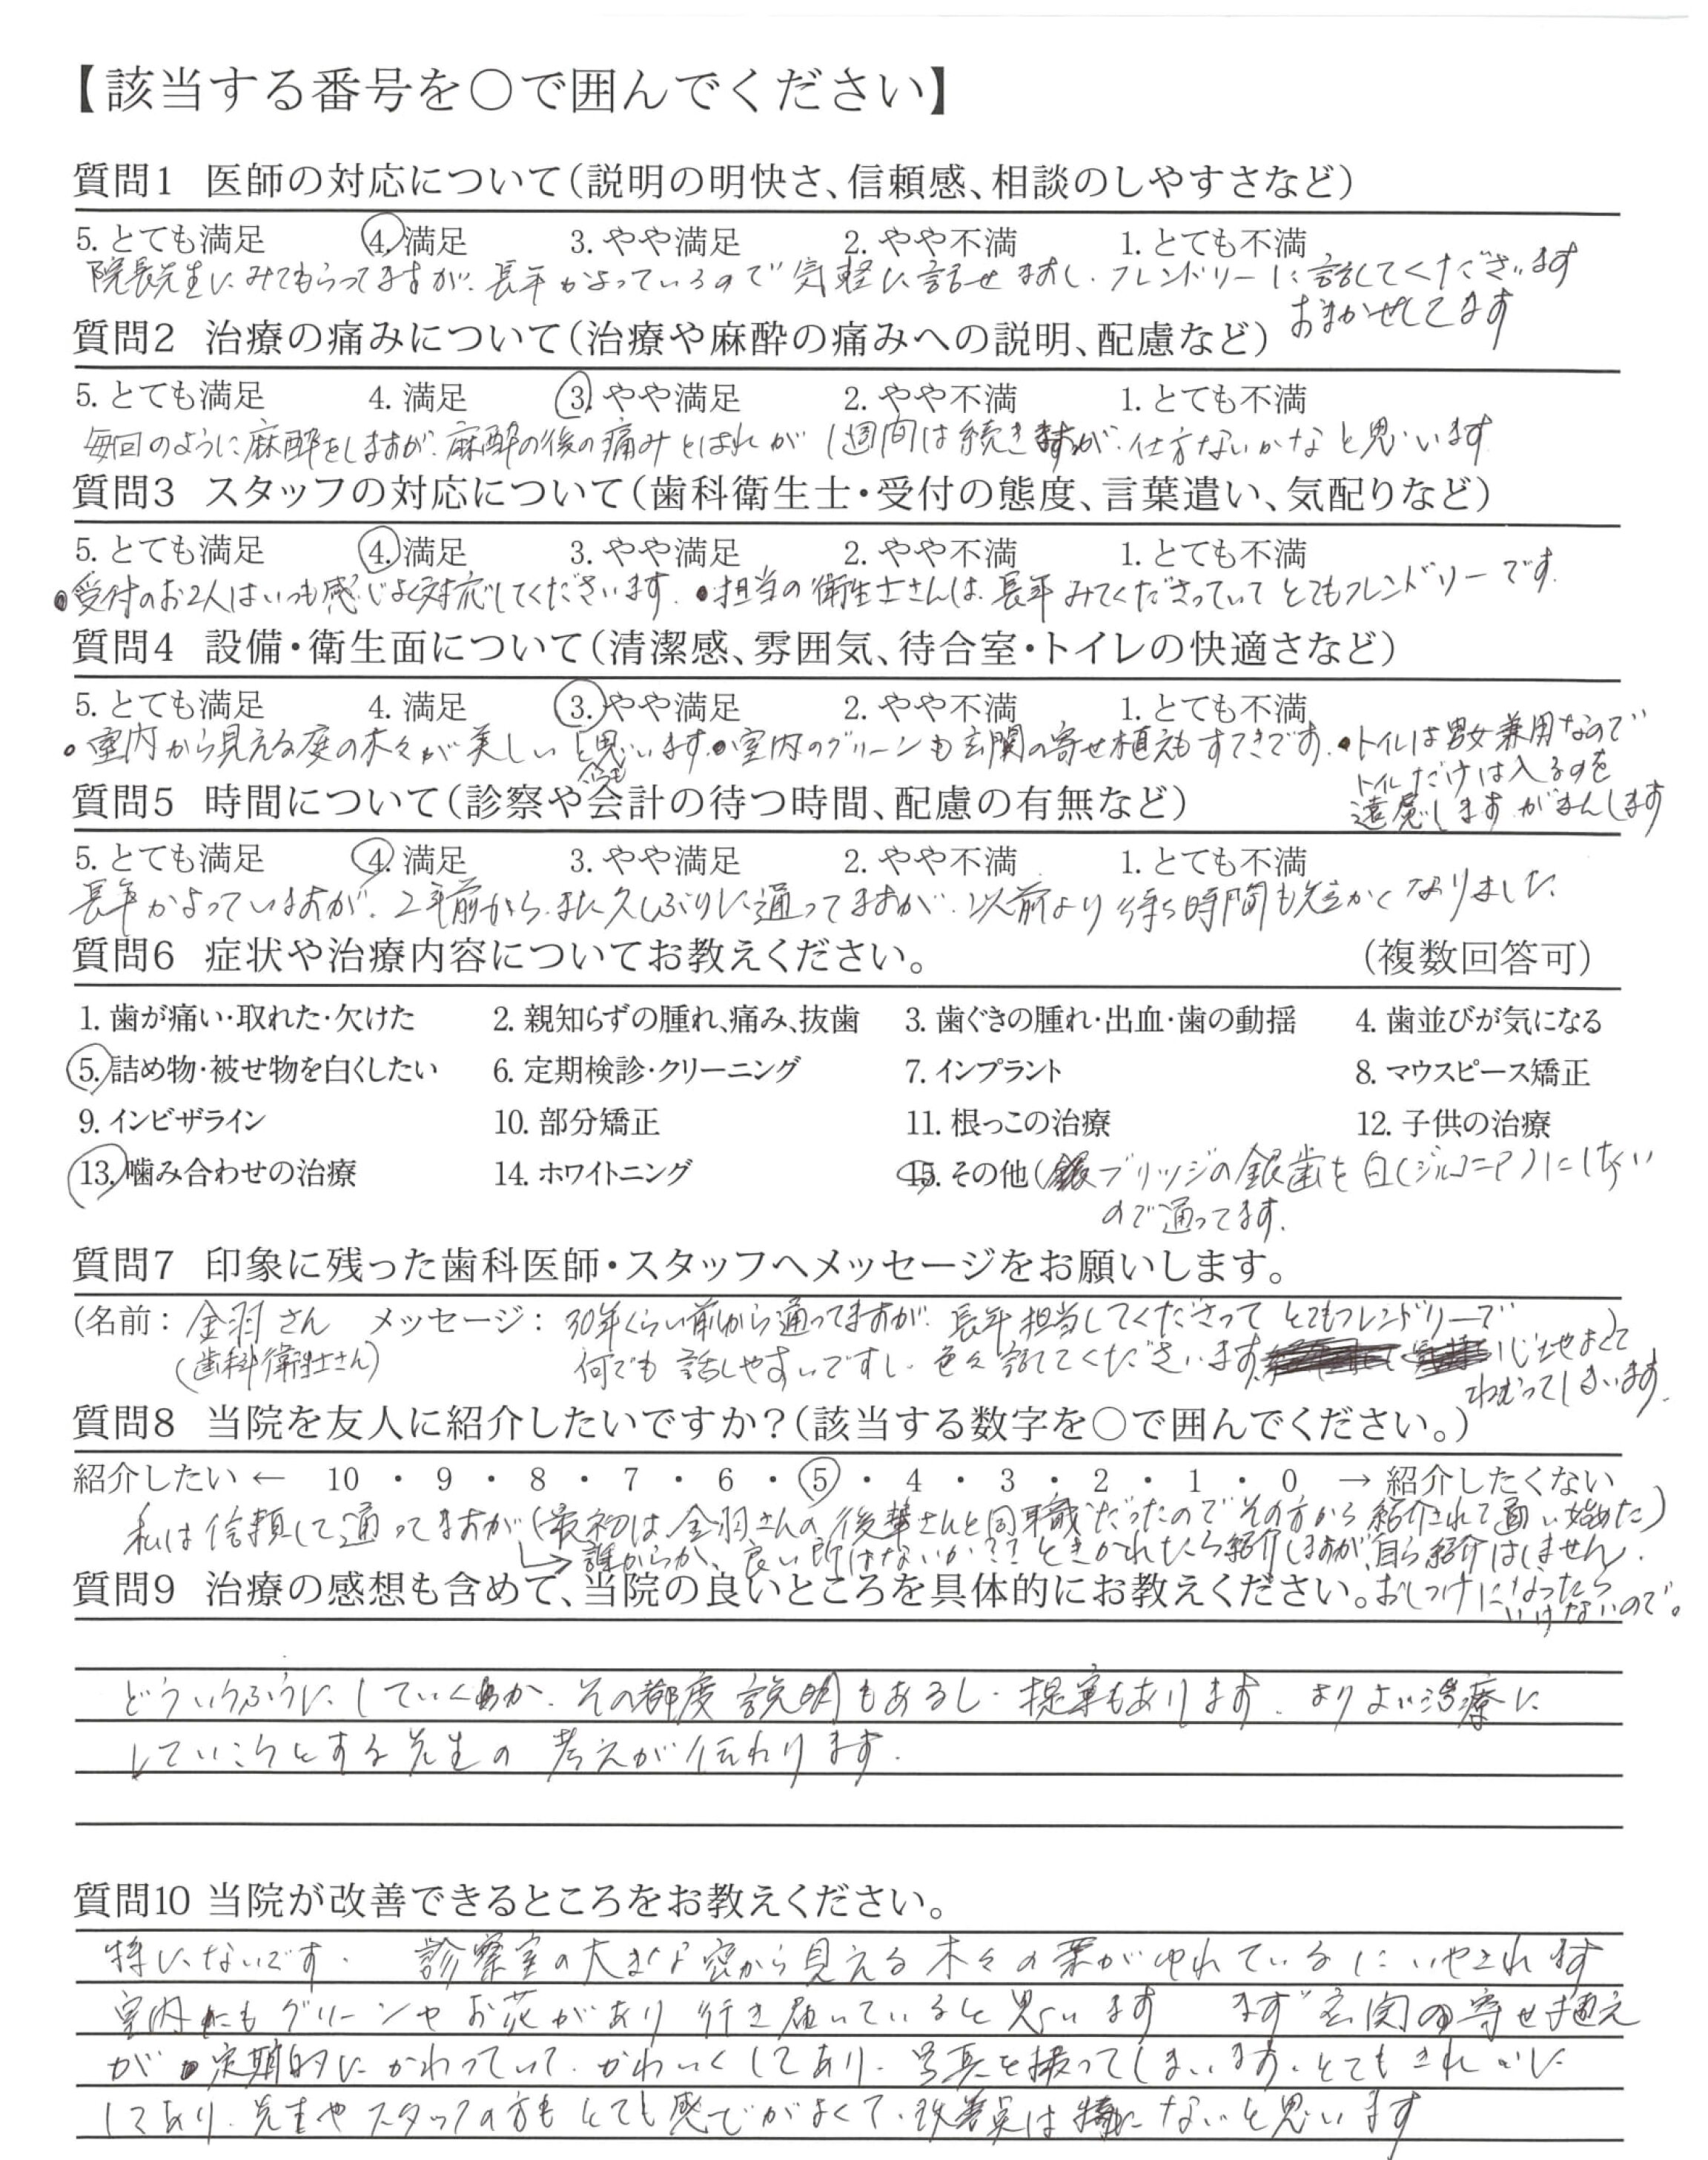 【該当する番号を○で囲んでください】
質問1 医師の対応について（説明の明快さ、信頼感、相談のしやすさなど）
5. とても満足 4. 満足 3. やや満足 2. やや不満 1. とても不満
院長先生にみてもらってますが、長年かよっているので気軽に話せますし、フレンドリーに話してくださいます
おまかせしてます
質問2 治療の痛みについて（治療や麻酔の痛みへの説明、配慮など）
5. とても満足 4. 満足 3. やや満足 2. やや不満 1. とても不満
毎回のように麻酔をしますが、麻酔の後の痛みとはれが1週間は続きますが、仕方ないかなと思います
質問3 スタッフの対応について（歯科衛生士・受付の態度、言葉遣い、気配りなど）
5. とても満足 4. 満足 3. やや満足 2. やや不満 1. とても不満
●受付のお2人はいつも感じよく対応してくださいます。●担当の衛生士さんは、長年みてくださっていてとてもフレンドリーです。
質問4 設備・衛生面について（清潔感、雰囲気、待合室・トイレの快適さなど）
5. とても満足 4. 満足 3. やや満足 2. やや不満 1. とても不満
●室内から見える庭の木々が美しいと思います。●室内のグリーンも玄関の寄せ植えもすてきです。●トイレは男女兼用なので
いつも
トイレだけは入るのを
遠慮します がまんします
質問5 時間について（診察や会計の待つ時間、配慮の有無など）
5. とても満足 4. 満足 3. やや満足 2. やや不満 1. とても不満
長年かよっていますが、2年前から、また久しぶりに通ってますが、以前より待ち時間も短かくなりました
質問6 症状や治療内容についてお教えください。 （複数回答可）
1. 歯が痛い・取れた・欠けた 2. 親知らずの腫れ、痛み、抜歯 3. 歯ぐきの腫れ・出血・歯の動揺 4. 歯並びが気になる
5. 詰め物・被せ物を白くしたい 6. 定期検診・クリーニング 7. インプラント 8. マウスピース矯正
9. インビザライン 10. 部分矯正 11. 根っこの治療 12. 子供の治療
13. 噛み合わせの治療 14. ホワイトニング 15. その他（ブリッジの銀歯を白（ジルコニア）にしたい
ので通ってます。
質問7 印象に残った歯科医師・スタッフへメッセージをお願いします。
（名前： 金羽さん メッセージ： 30年くらい前から通ってますが、長年担当してくださってとてもフレンドリーで）
（歯科衛生士さん） 何でも話しやすいですし、色々話してくださいます。心地よくて
ねむってしまいます。
質問8 当院を友人に紹介したいですか？（該当する数字を○で囲んでください。）
紹介したい ← 10 ・ 9 ・ 8 ・ 7 ・ 6 ・ 5 ・ 4 ・ 3 ・ 2 ・ 1 ・ 0 → 紹介したくない
私は信頼して通ってますが（最初は、金羽さんの後輩さんと同職だったのでその方から紹介されて通い始めた）
→誰からか、良い所はないか？？ときかれたら紹介しますが、自ら紹介はしません。
おしつけになったら
いけないので。
質問9 治療の感想も含めて、当院の良いところを具体的にお教えください。
どういうふうにしていくか、その都度説明もあるし、提案もあります。よりよい治療に
していこうとする先生の考えが伝わります。
質問10 当院が改善できるところをお教えください。
特にないです。 診察室の大きな窓から見える木々の葉がゆれているにいやされます
室内にもグリーンやお花があり行き届いていると思います まず玄関の寄せ植え
が定期的にかわっていて、かわいくしてあり、写真を撮ってしまいます。とてもきれいに
してあり、先生やスタッフの方もとても感じがよくて、改善点は特にないと思います